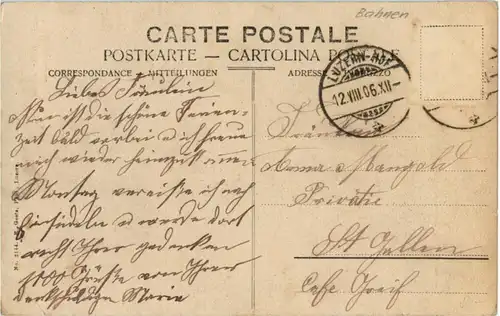 Bahnen
CARTE POSTALE
POSTKARTE – CARTOLINA POSTALE
CORRESPONDANCE – MITTEILUNGEN
ADRESSE
LUZERN-HOF
12.VIII.06.XII-
Liebes Fräulein
Nun ist die schöne Ferien-
zeit bald vorbei & ich freue
mich wieder heimzukommen
Montag verreiste ich nach
Einsiedeln & werde dort
recht Ihrer gedenken
1000 Grüsse von Ihrer
Marie
Fräulein
Anna Mangold
Private
St Gallen
Cafe Greif